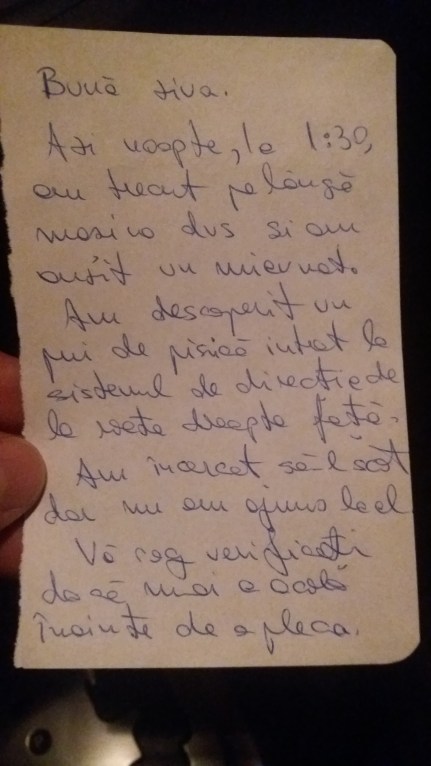 Bună ziua.
Azi noapte, la 1:30,
am trecut pe lângă
mașina dvs si am
auzit un miernat.
Am descoperit un
pui de pisică intrat la
sistemul de direcție de
la roata dreapta față.
Am încercat să-l scot
dar nu am ajuns la el
Vă rog verificați
dacă mai e acolo
înainte de a pleca.